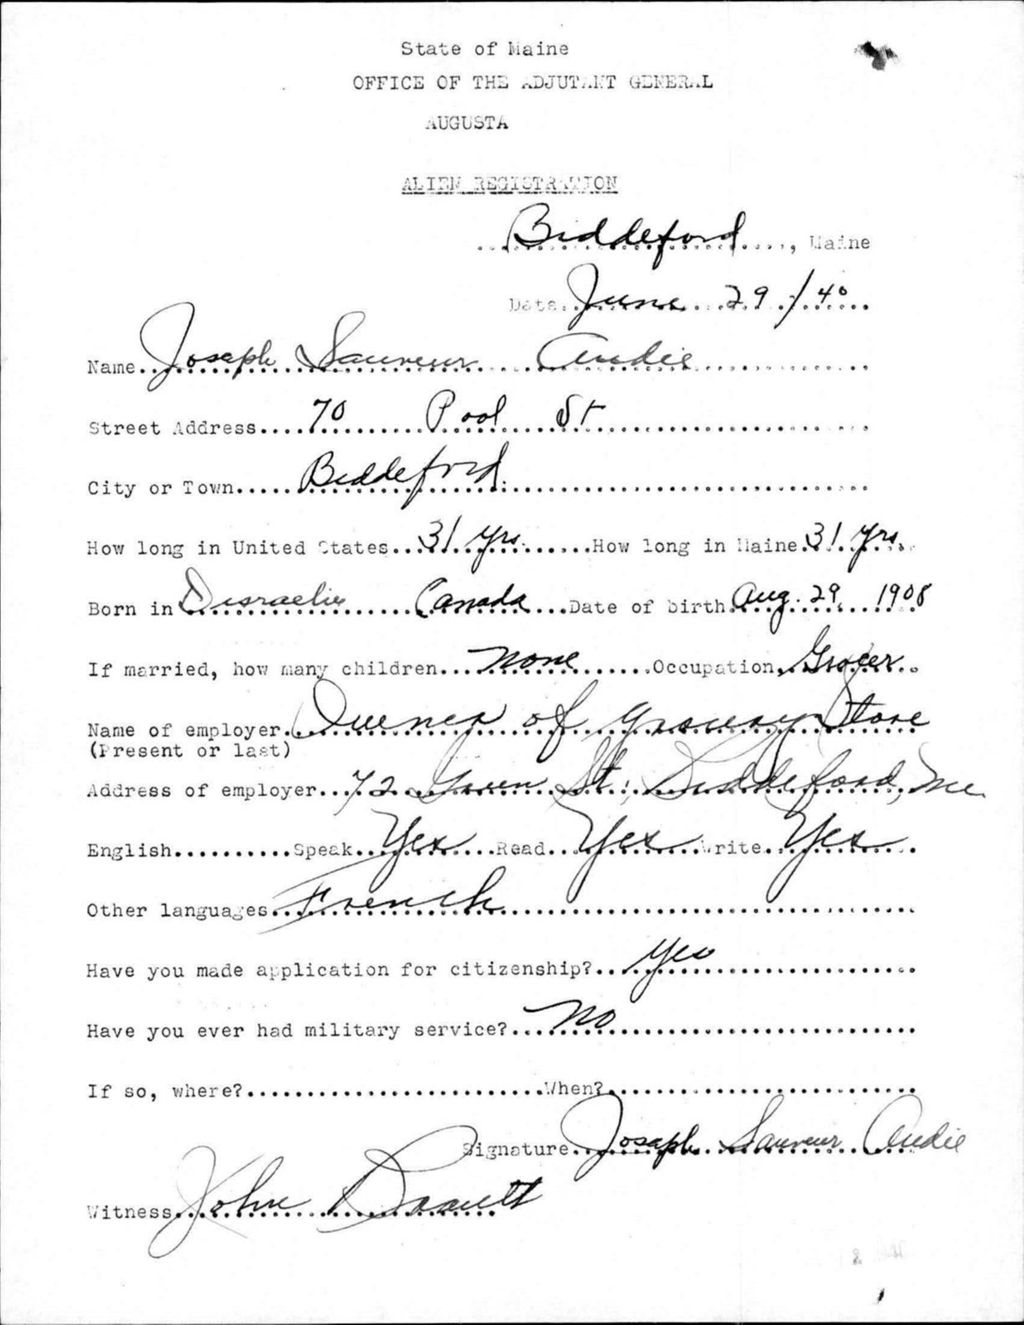 State of Maine
OFFICE OF THE ADJUTANT GENERAL
AUGUSTA
ALIEN REGISTRATION
Biddeford, Maine
Date June 29 / 40
Name Joseph Sauveur Audie
Street Address 70 Pool St
City or Town Biddeford
How long in United States 31 yrs How long in Maine 31 yrs
Born in Disraelie Canada Date of birth Aug. 29 1908
If married, how many children None Occupation Grocer
Name of employer Owner of Grocery Store
(Present or last)
Address of employer 72 St. Biddeford, Me
English Speak Yes Read Yes Write Yes
Other languages French
Have you made application for citizenship? Yes
Have you ever had military service? No
If so, where? When?
Signature Joseph Sauveur Audie
Witness John